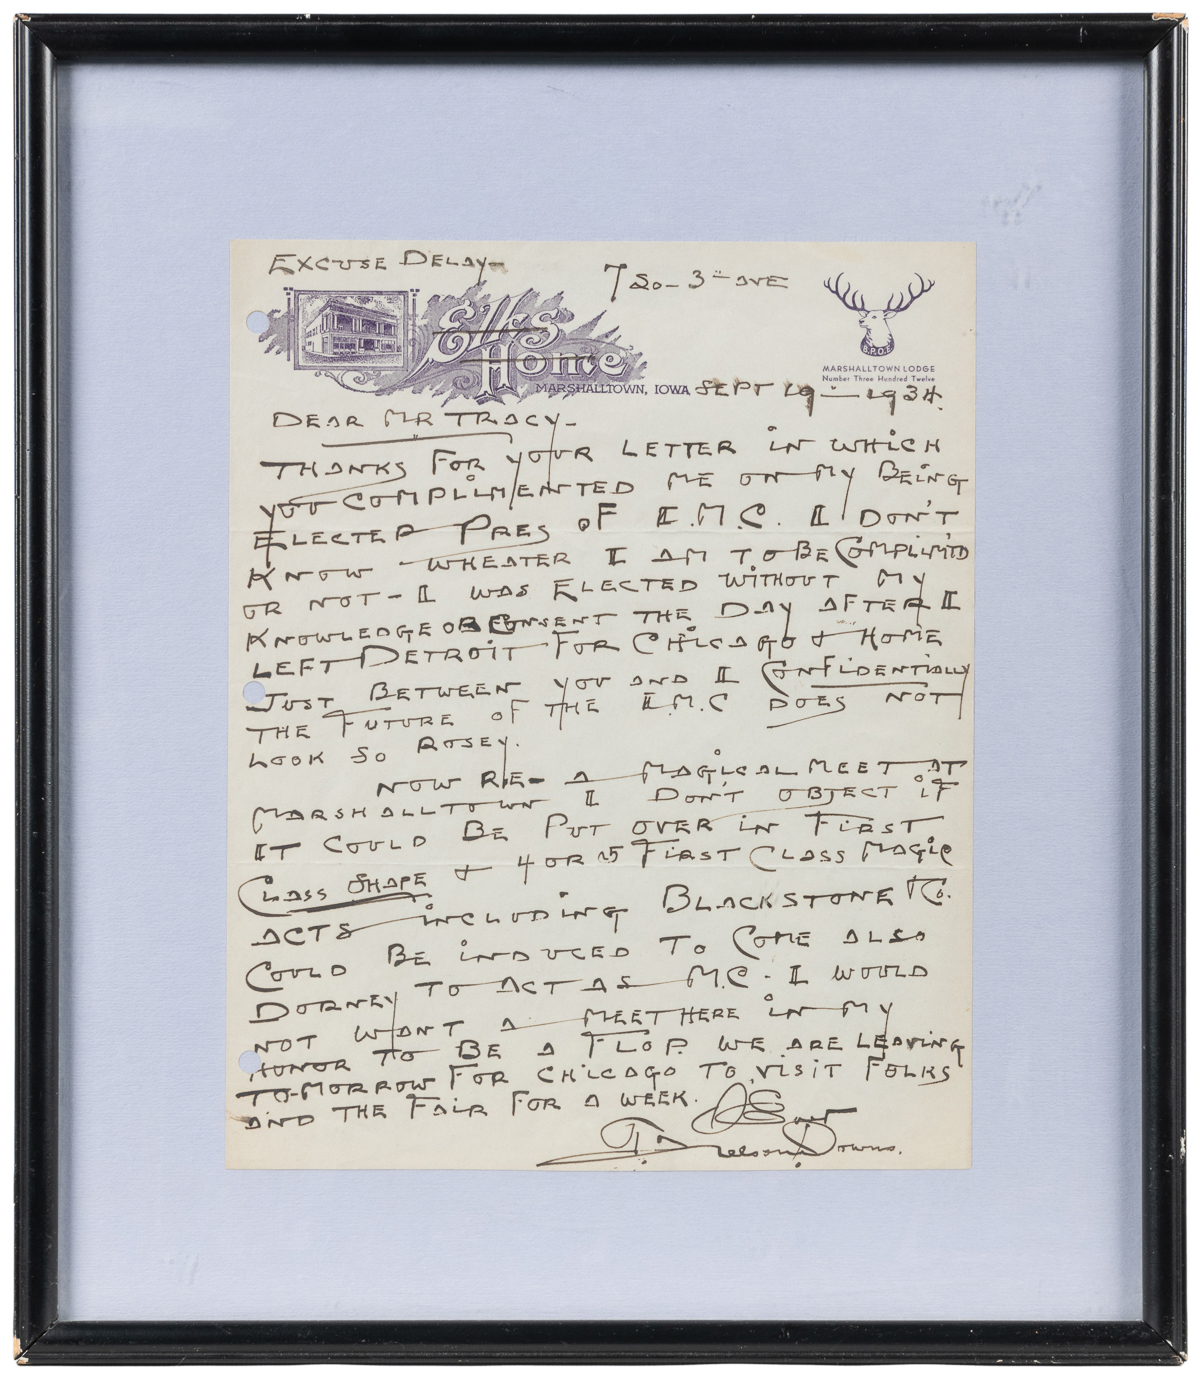 EXCUSE DELAY-
720- 3RD AVE
Elks Home
B.P.O.E
MARSHALLTOWN LODGE
Number Three Hundred Twelve
MARSHALLTOWN, IOWA SEPT 19 - 1934.
DEAR MR TRACY-
THANKS FOR YOUR LETTER IN WHICH
YOU COMPLIMENTED ME ON MY BEING
ELECTED PRES OF I.M.C. I DON'T
KNOW WHEATER I AM TO BE COMPLIM'TD
OR NOT - I WAS ELECTED WITHOUT MY
KNOWLEDGE OR CONSENT THE DAY AFTER I
LEFT DETROIT FOR CHICAGO & HOME
JUST BETWEEN YOU AND I CONFIDENTIALLY
THE FUTURE OF THE I.M.C DOES NOT
LOOK SO ROSEY.
NOW RE- A MAGICAL MEET AT
MARSHALLTOWN I DON'T OBJECT IF
IT COULD BE PUT OVER IN FIRST
CLASS SHAPE & 4 OR 5 FIRST CLASS MAGIC
ACTS INCLUDING BLACKSTONE & CO.
COULD BE INDUCED TO COME ALSO
DORNEY TO ACT AS M.C. I WOULD
NOT WANT A MEET HERE IN MY
HONOR TO BE A FLOP. WE ARE LEAVING
TO-MORROW FOR CHICAGO TO VISIT FOLKS
AND THE FAIR FOR A WEEK.
T. Nelson Downs.